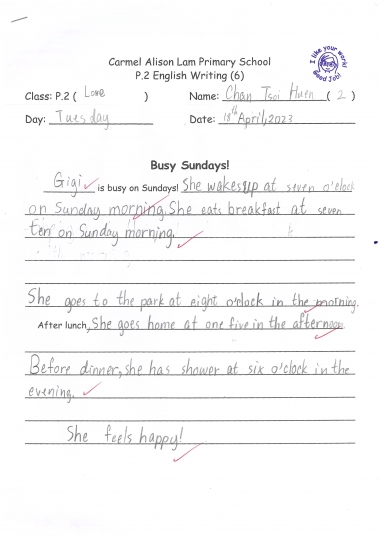 Carmel Alison Lam Primary School
P.2 English Writing (6)
I like your work!
Good Job!
Class: P.2 ( Love ) Name: Chan Tsoi Huen ( 2 )
Day: Tuesday Date: 18th April, 2023
Busy Sundays!
Gigi is busy on Sundays! She wakes up at seven o'clock
on Sunday morning. She eats breakfast at seven
ten on Sunday morning.
She goes to the park at eight o'clock in the morning.
After lunch, She goes home at one five in the afternoon.
Before dinner, she has shower at six o'clock in the
evening.
She feels happy!